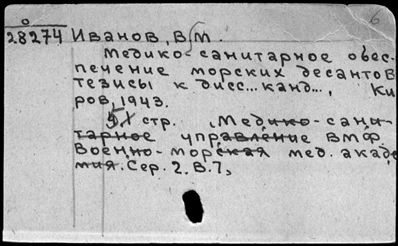 6
28274 Иванов, В. М.
Медико-санитарное обес-
печение морских десантов
тезисы к дисс... канд..., Ки
ров, 1943.
5 стр. (Медико-сани-
тарное управление ВМФ
Военно-морская мед. акаде
мия. Сер. 2. В. 7,